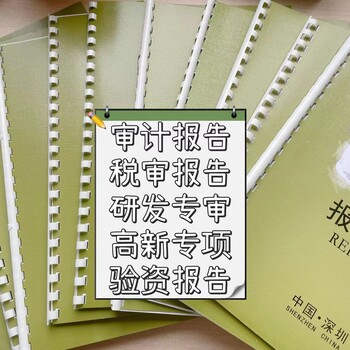 审计报告
税审报告
研发专审
高新专项
验资报告
报
中国·深圳
SHENZHEN CHINA